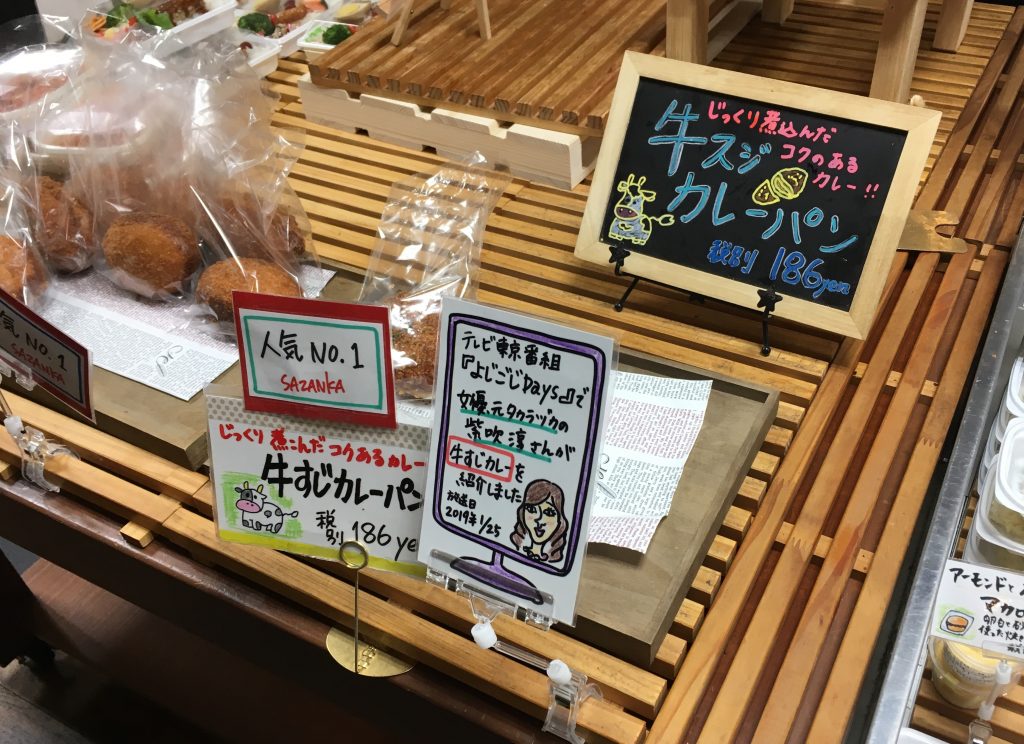 じっくり煮込んだ
コクのある
カレー!!
牛スジ
カレーパン
税別 186yen
人気 NO.1
SAZANKA
人気 NO.1
SAZANKA
じっくり煮こんだコクあるカレー
牛すじカレーパン
税別 186ye
テレビ東京番組
『よじごじDays』で
女優、元タカラヅカの
紫吹淳さんが
牛すじカレーを
紹介しました
放送日
2019年1/25
アーモンド
マカロ
卵白
使った焼